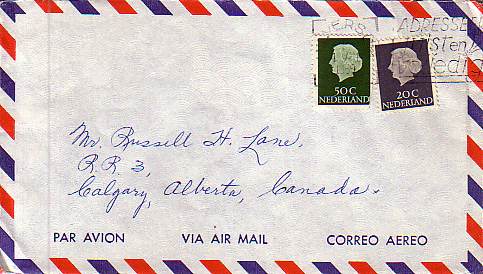 ADRESSEER
50 C
NEDERLAND
20 C
NEDERLAND
Mr. Russell H. Lane,
R.R. 3,
Calgary, Alberta, Canada.
PAR AVION
VIA AIR MAIL
CORREO AEREO